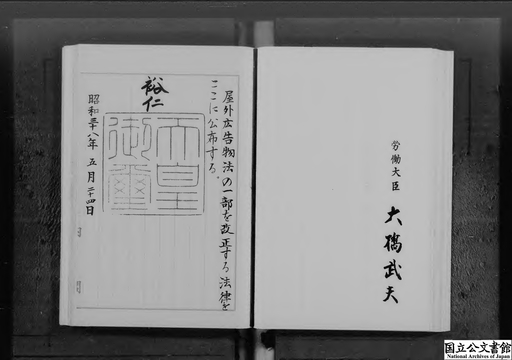 屋外広告物法の一部を改正する法律を
ここに公布する。
裕仁
天皇
御璽
昭和三十八年 五月二十四日
労働大臣 大橋武夫
国立公文書館
National Archives of Japan